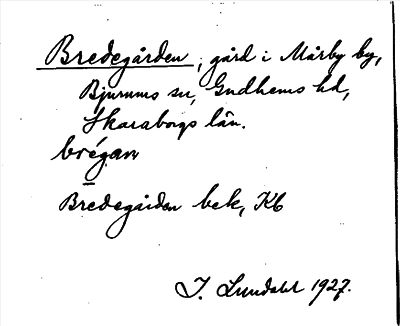 Bredegården, gård i Mårby by,
Bjurums sn, Gudhems hd,
Skaraborgs län.
brégan
Bredegården bek, Kb
I. Lundahl 1927.